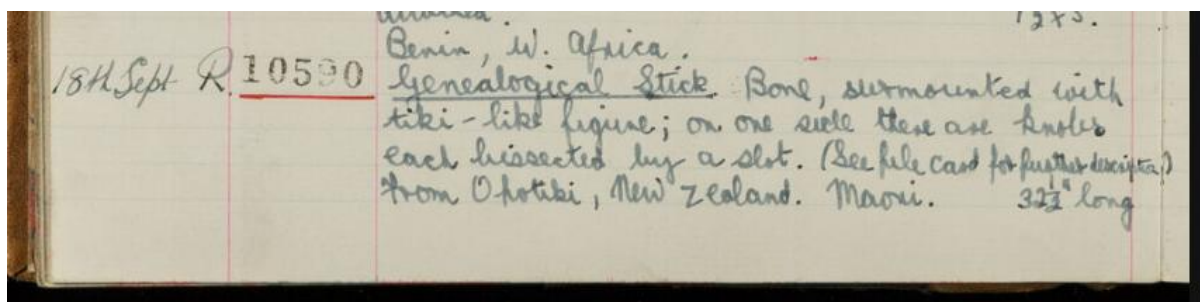 attached. 12 x 5.
Benin, W. Africa.
18th Sept R. 10590 Genealogical Stick. Bone, surmounted with
tiki-like figure; on one side there are knobs
each bissected by a slot. (See file card for further descripta.)
From Opotiki, New Zealand. Maori. 32½" long